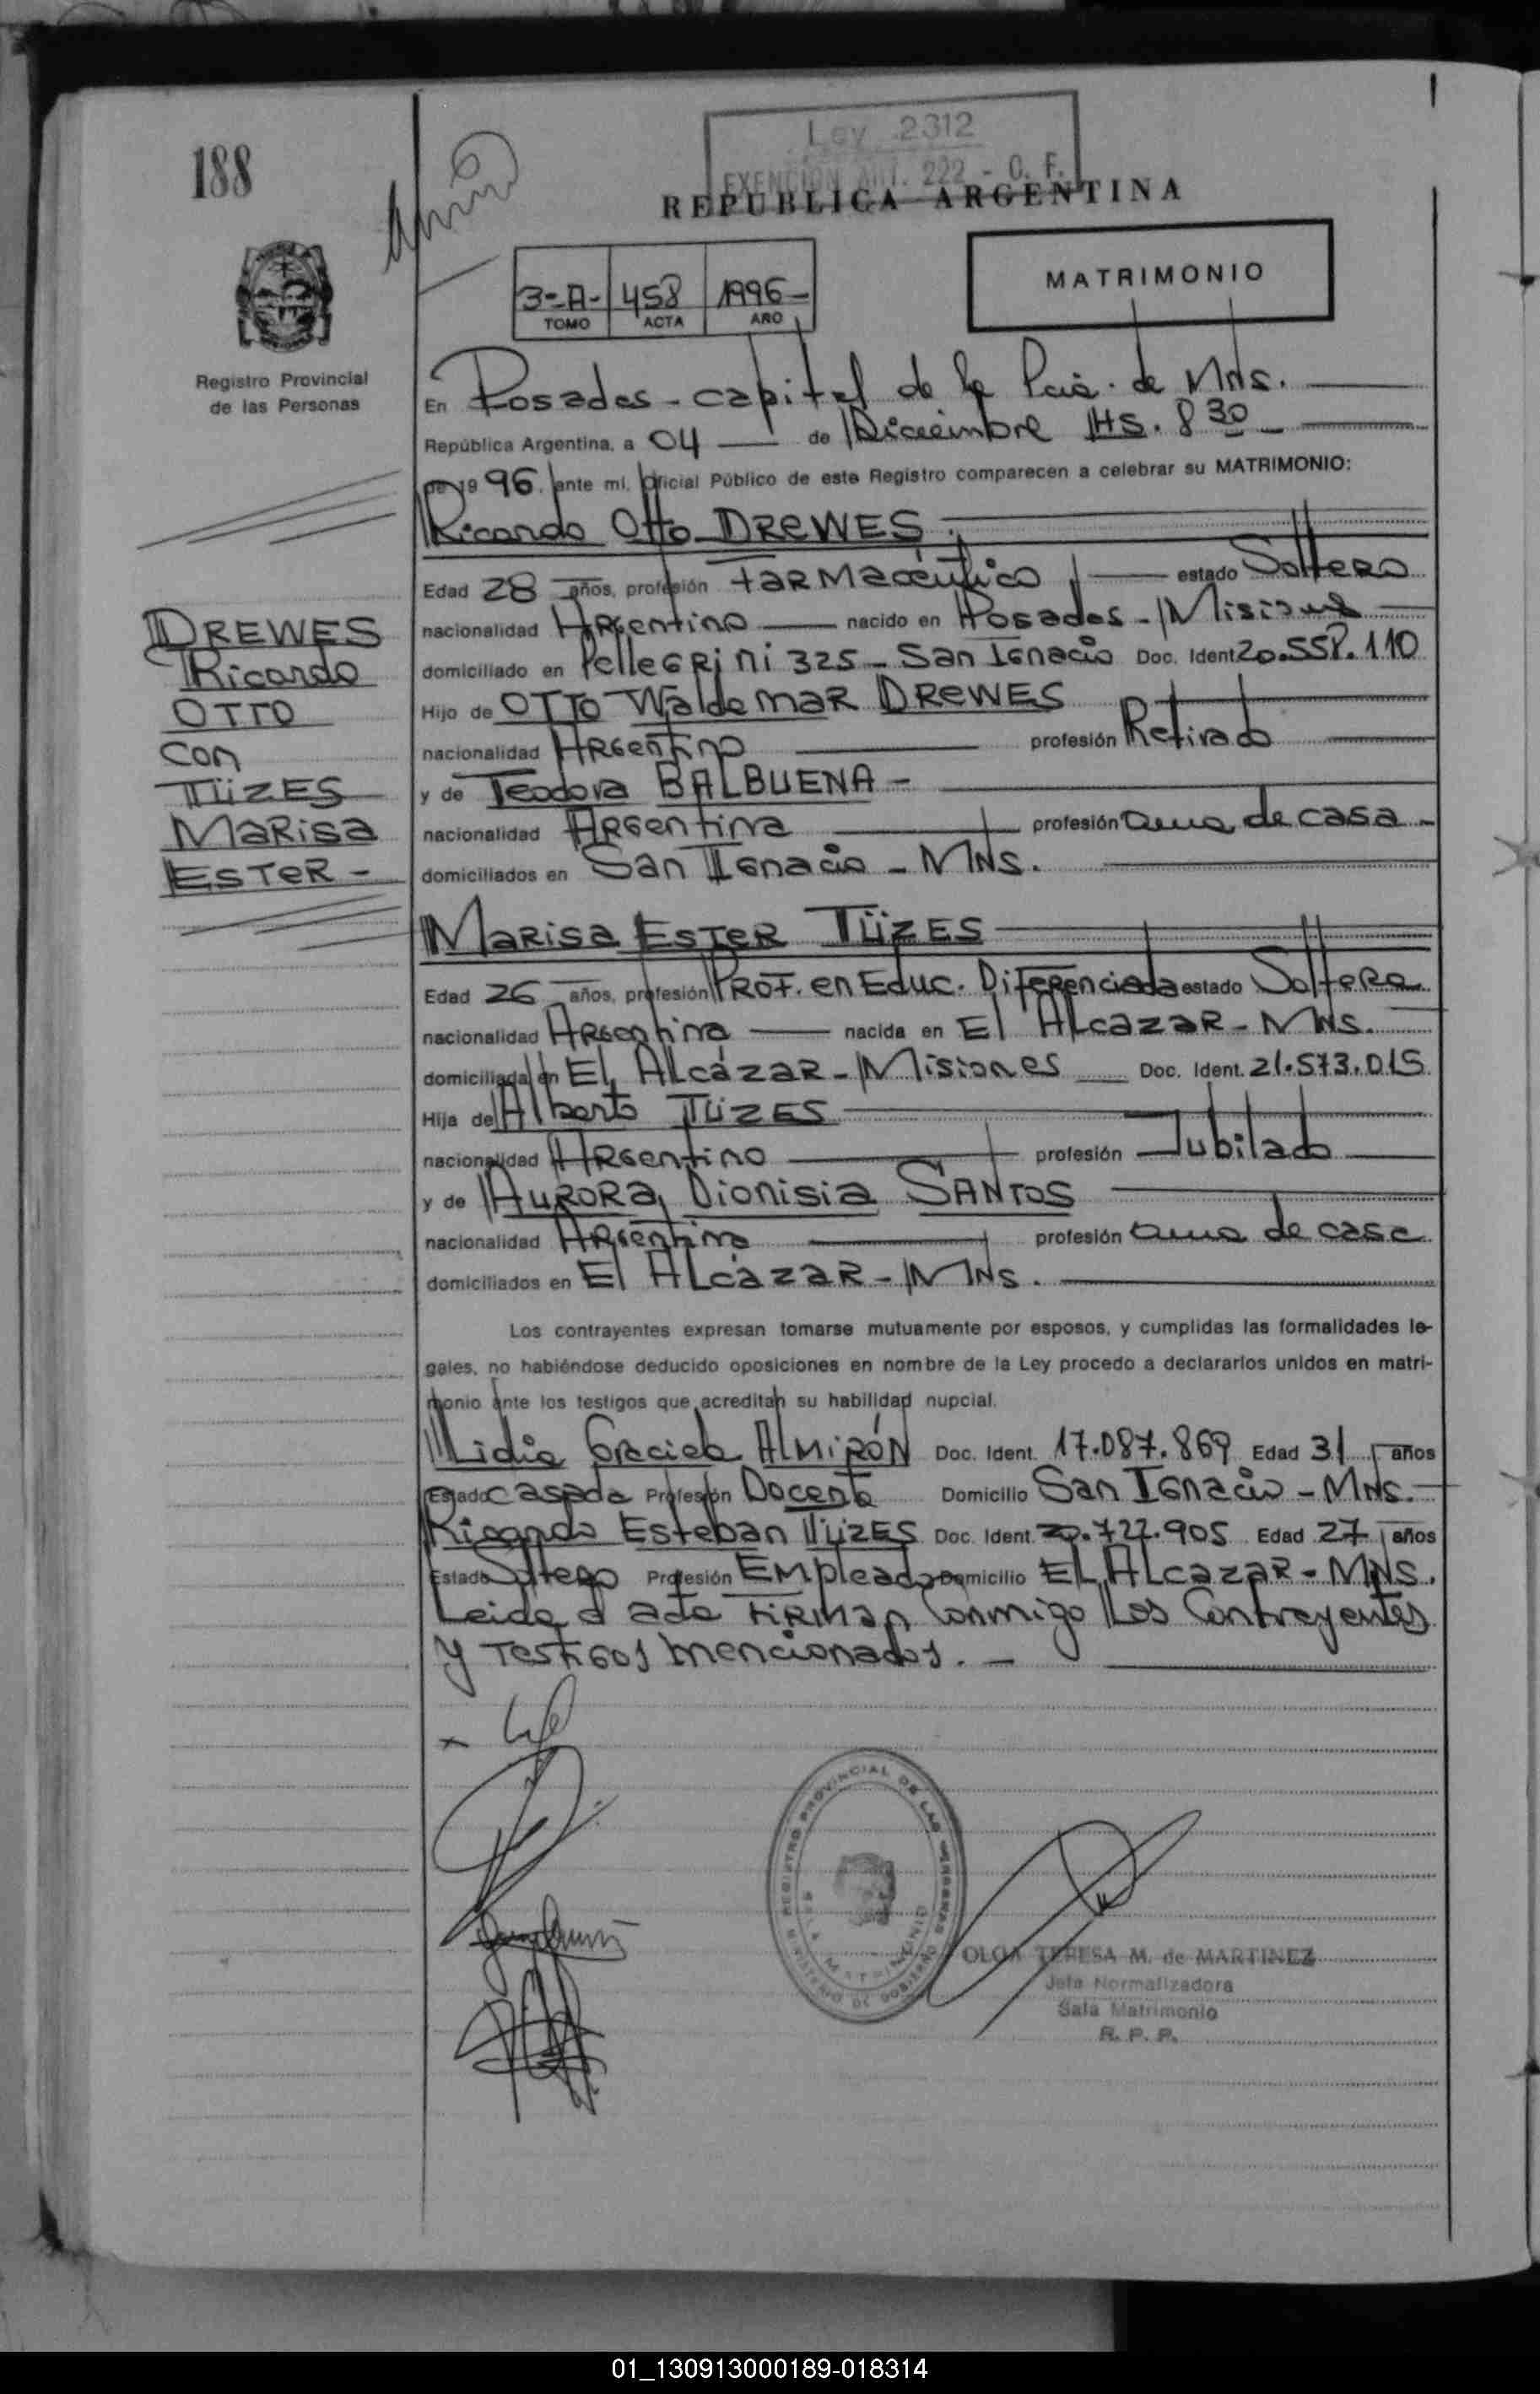 188
Ley 2312
EXENCION Art. 222 - O. F.
REPUBLICA ARGENTINA
MATRIMONIO
3-A- 458 1996-
TOMO ACTA AÑO
Registro Provincial
de las Personas
En Posadas - capital de la de Mnes.
República Argentina, a 04 de Diciembre HS. 8 30
de 19 96, ante mi, Oficial Público de este Registro comparecen a celebrar su MATRIMONIO:
Ricardo Otto DREWES
Edad 28 años, profesión Farmacéutico estado Soltero
nacionalidad Argentino nacido en Posadas - Misiones
domiciliado en Pellegrini 325 - San Ignacio Doc. Ident. 110
Hijo de OTTO Waldemar DREWES
nacionalidad Argentino profesión Retirado
y de Teodora BALBUENA -
nacionalidad Argentina profesión ama de casa -
domiciliados en San Ignacio - MNS.
DREWES
Ricardo
OTTO
con
TÜZES
Marisa
ESTER -
Marisa Ester TÜZES
Edad 26 años, profesión Prof. en Educ. Diferenciada estado Soltera
nacionalidad Argentina nacida en El Alcazar - MNS.
domiciliada en El Alcázar - Misiones Doc. Ident. 21.573.015
Hija de Alberto TÜZES
nacionalidad Argentino profesión Jubilado
y de Aurora Dionisia SANTOS
nacionalidad Argentina profesión ama de casa
domiciliados en El Alcázar - MNS.
Los contrayentes expresan tomarse mutuamente por esposos, y cumplidas las formalidades le-
gales, no habiéndose deducido oposiciones en nombre de la Ley procedo a declararlos unidos en matri-
monio ante los testigos que acreditan su habilidad nupcial.
Lidia Graciela ALMIRÓN Doc. Ident. 17.087.869 Edad 31 años
Estado casada Profesión Docente Domicilio San Ignacio - MNS.
Ricardo Esteban TÜZES Doc. Ident. 20.722.905 Edad 27 años
Estado Soltero Profesión Empleado Domicilio El Alcazar - MNS.
Leida el acta firman conmigo los Contrayentes
y testigos mencionados. -
REGISTRO PROVINCIAL DE LAS PERSONAS
MINISTERIO DE GOBIERNO
SALA MATRIMONIO
OLGA TERESA M. de MARTINEZ
Jefa Normalizadora
Sala Matrimonio
R. P. P.
01_130913000189-018314